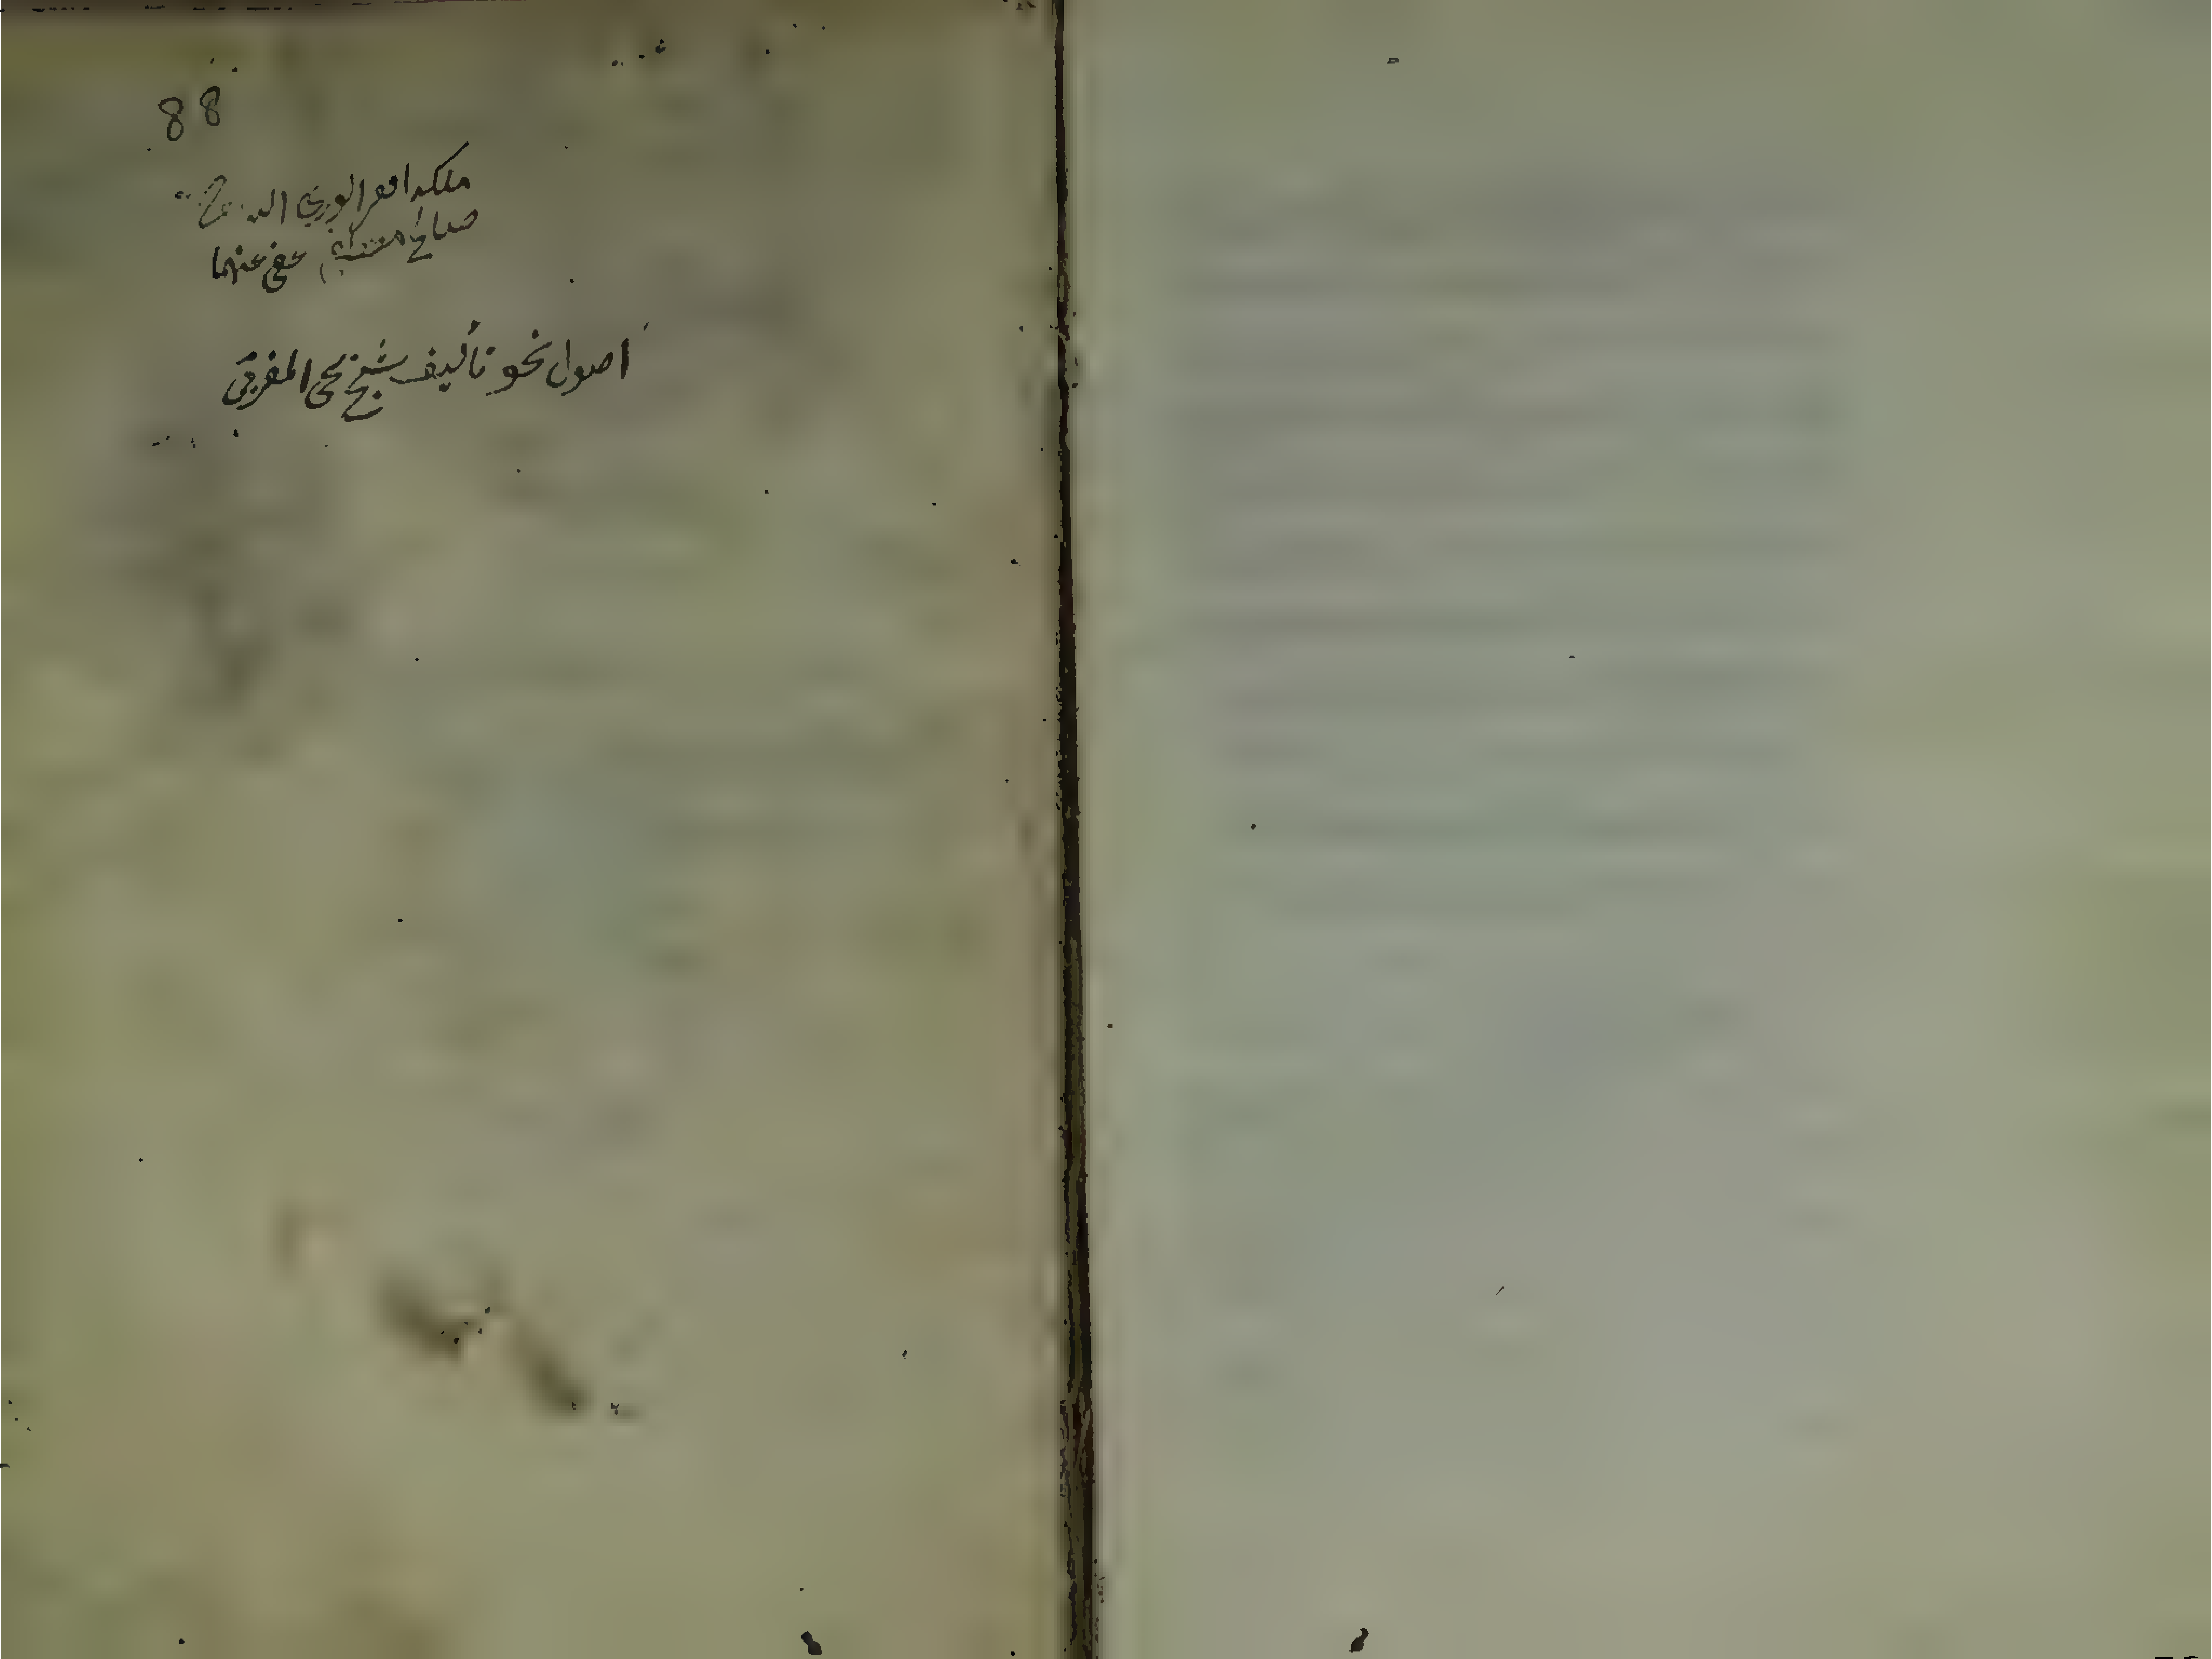 88
ملكه افقر الورى
صالح عفى عنهما
اصول نحو تأليف شيخ يحيى المغربى